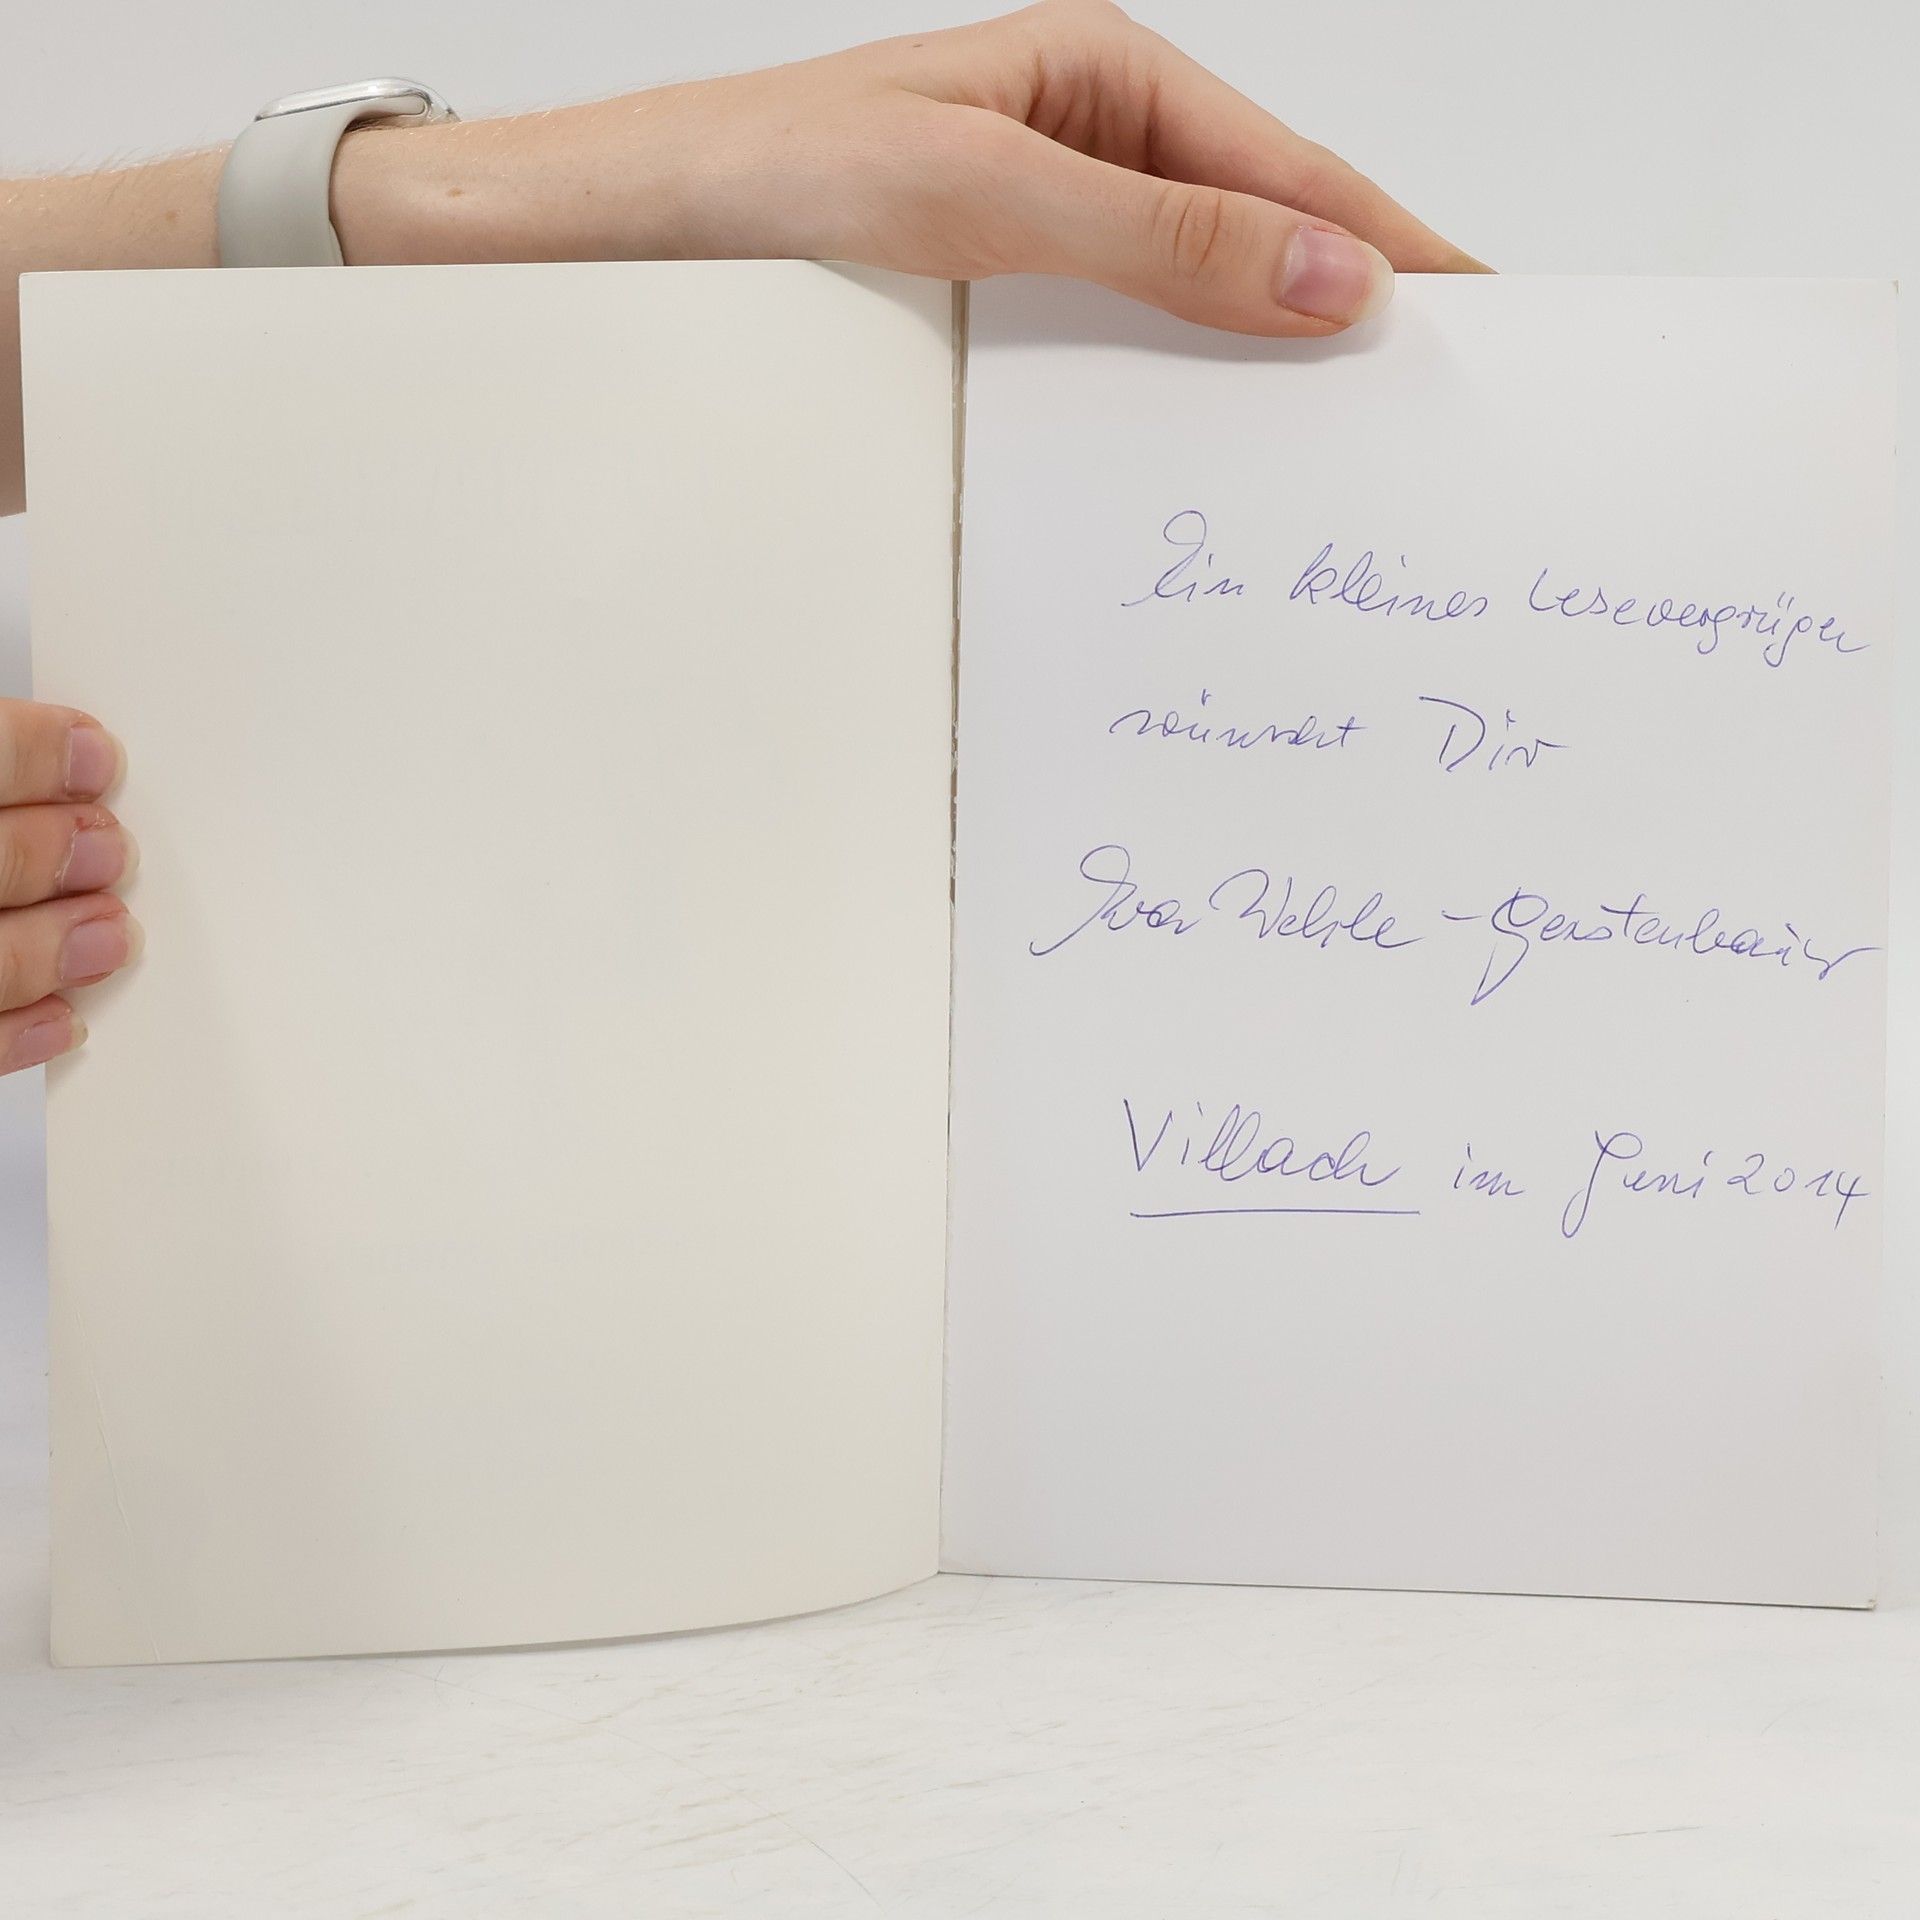 Ein kleines Lesevergnügen
wünscht Dir
Eva Wehrle-Gerstenbauer
Villach im Juni 2014